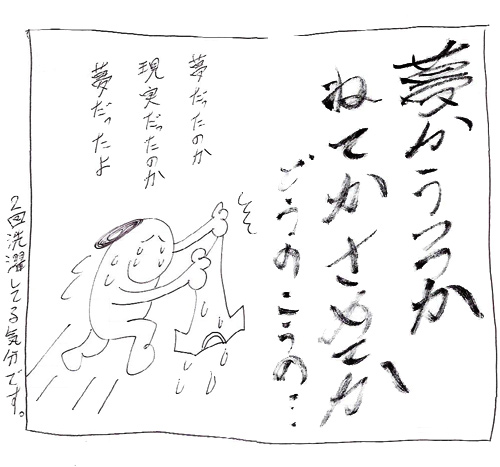 夢かうつつか
ねてかさめてか
どうのこうの…
夢だったのか
現実だったのか
夢だったよ
2回洗濯してる気分です。